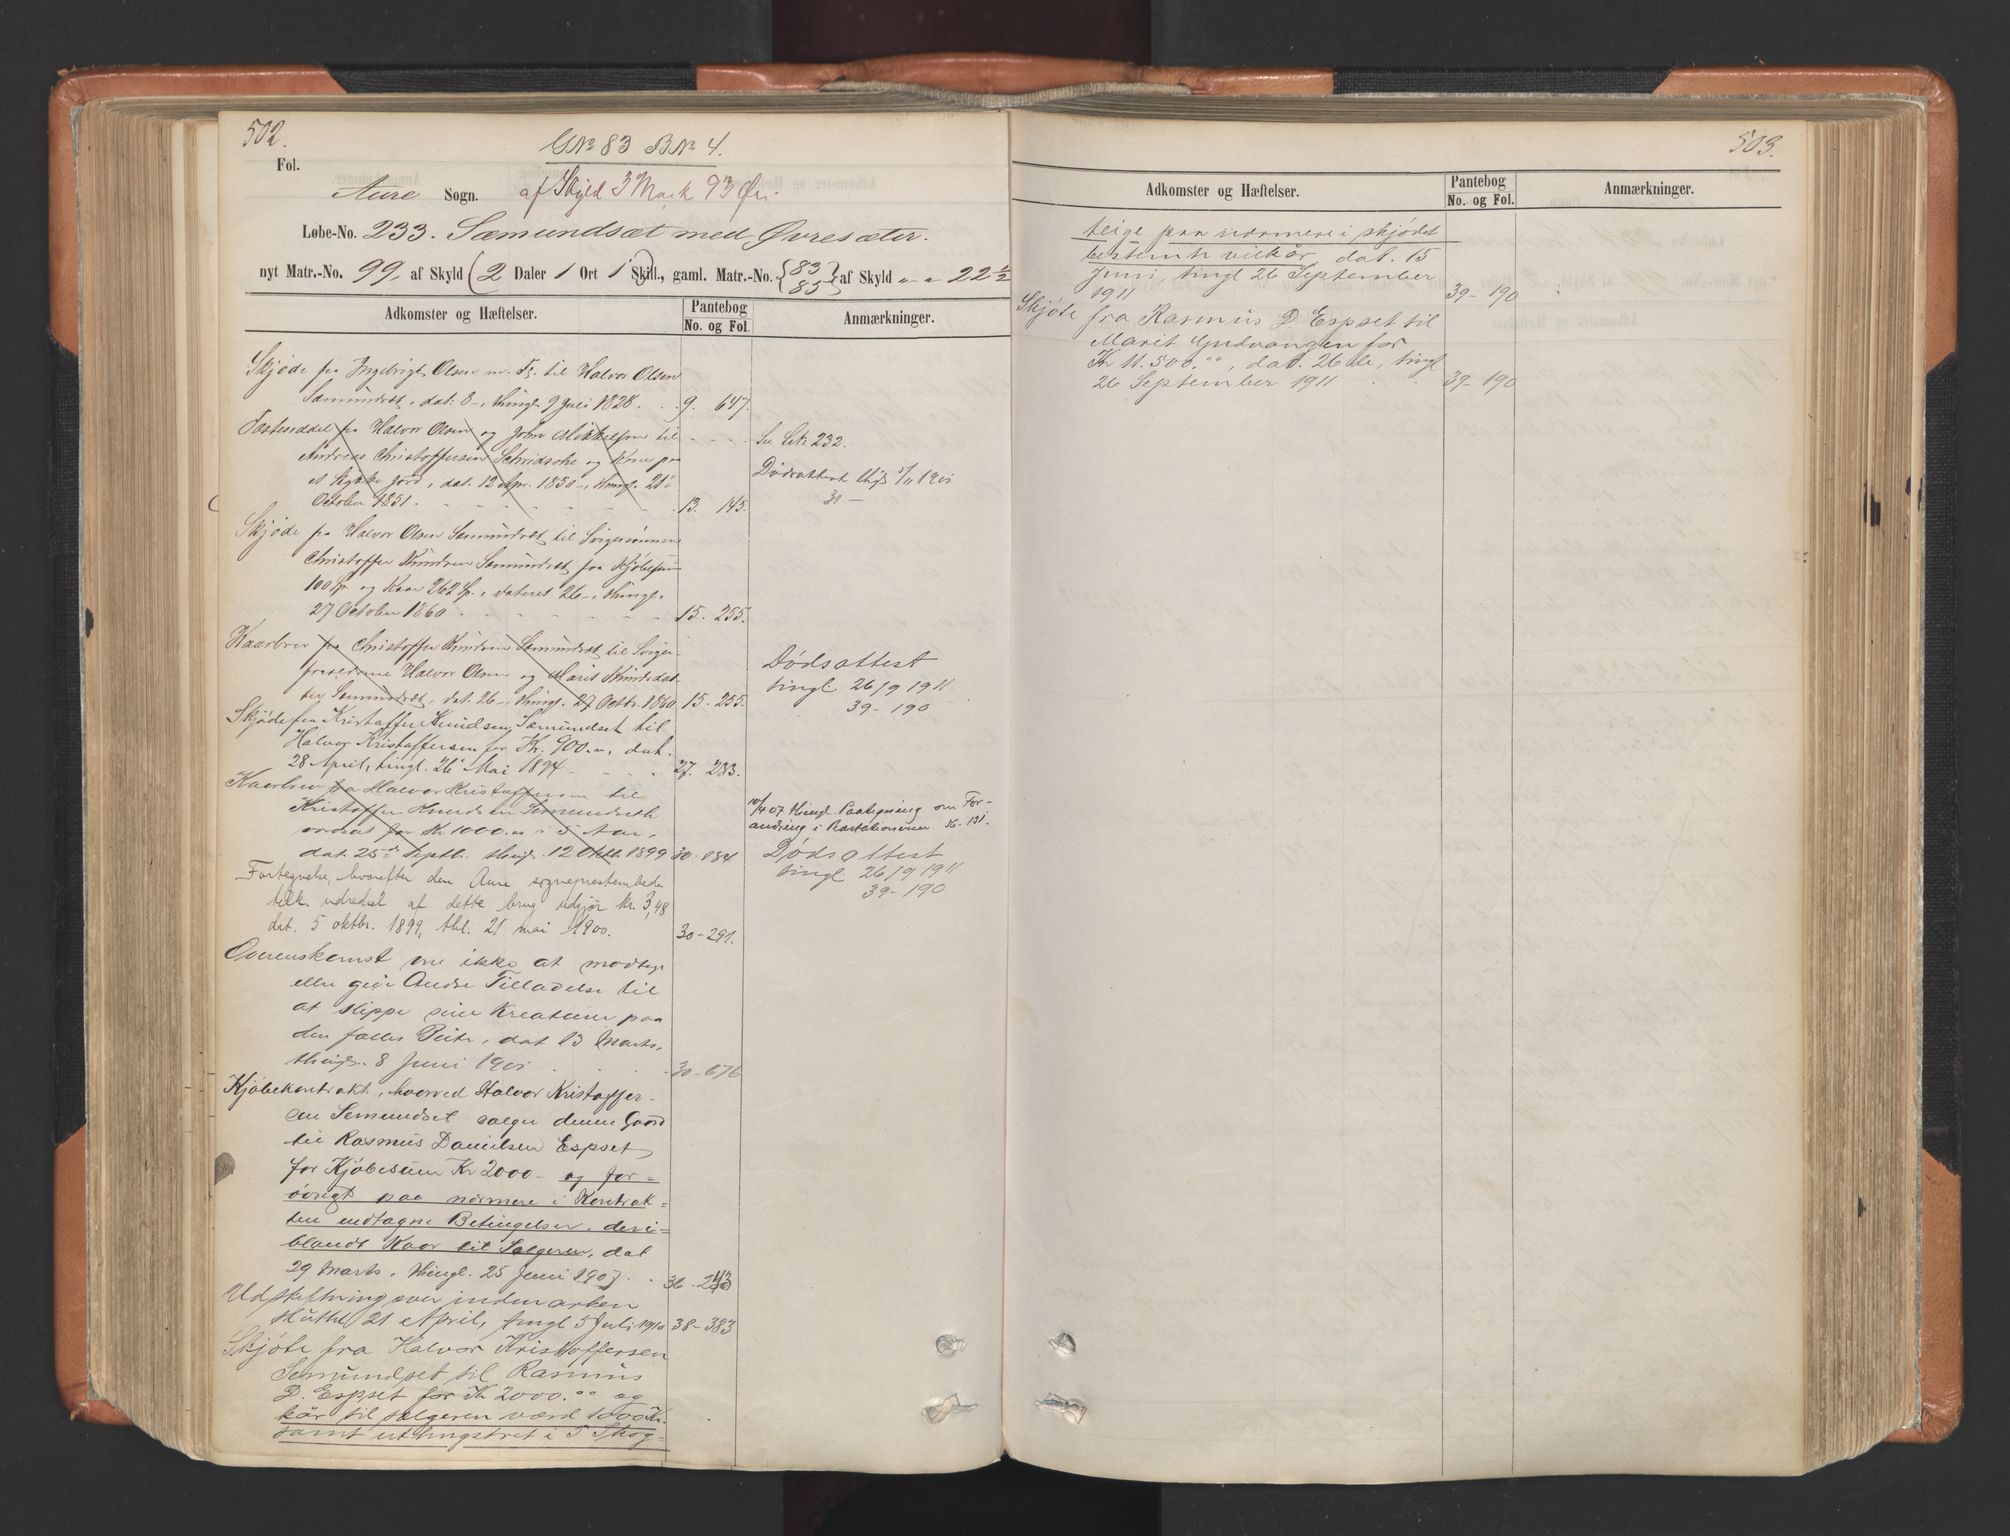 502.
GNo 83 BNo 4.
Fol.
Aure Sogn. af Skyld 3 Mark 93 Øre
Løbe-No. 233. Sæmundsæt med Øvresæter.
nyt Matr.-No. 99, af Skyld (2 Daler 1 Ort 1 Skill.), gaml. Matr.-No. {83 85} af Skyld " - " 22 ½
Adkomster og Hæftelser.
Pantebog
No. og Fol.
Anmærkninger.
Skjøde fra Ingebrigt Olsen m. fl. til Halvor Olsen
Sæmundsæt, dat. 8-, thingl. 9 Juli 1828. . . 9. 647.
Fæsteseddel fra Halvor Olsen og John Mikkelsen til - - - - Se Lb. 232.
Andreas Christoffersen Schridsoke og Kone paa
et Stykke Jord, dat. 12 Apr. 1850-, thingl. 21de Dødsattest thgl 5/11 1901
October 1851. 13. 145. 31 -
Skjøde fra Halvor Olsen Semundsæt til Svigersønnen
Christoffer Knudsen Semundsæt paa Kjøbesum
100 Sp. og Kaar 262 Sp., dateret 26-, thingl.
27 October 1860 15. 255.
Kaarbrev fra Christoffer Knudsen Semundsæt til Sviger-
forældrene Halvor Olsen og Marit Knudsdat-
ter Semundsæt, dat. 26-, thingl. 27 Octbr. 1860 15. 255.
Dødsattest
tingl 26/9 1911
39- 190
Skjøde fra Kristoffer Knudsen Sæmundset til
Halvor Kristoffersen for Kr. 900.00, dat.
28 April, tingl. 26 Mai 1894 27. 233.
Kaarbrev fra Halvor Kristoffersen til
Kristoffer Knudsen Semundseth
ansat for Kr 1000.00 i 5 Aar,
dat. 25de Septb. thingl. 12 Oktb. 1899 30- 184
10/4 07 thingl. Paategning om For-
andring i Præstationerne. 36- 131.
Dødsattest
tingl 26/9 1911
39- 190
Fortegnelse, hvorefter den Aure sogneprestembede
tilk. udredsel af dette brug udgjør kr. 3,48
dat. 5 oktbr. 1899, thl. 21 mai 1900. 30- 291.
Overenskomst om ikke at modtage
eller give Andre Tilladelse til
at slippe sine Kreaturer paa
den fælles Beite, dat 13 Marts,
thingl. 8 Juni 1901 30- 676
Kjøbekontrakt, hvorved Halvor Kristoffer-
sen Semundset sælger denne Gaard
til Rasmus Danielsen Espset
for Kjøbesum Kr 2000- og for-
øvrigt paa nærmere i Kontrak-
ten indtagne Betingelser, deri-
blandt Kaar til Sælgeren, dat
29 Marts, thingl. 25 Juni 1907. 36- 243
Udskiftning over indmarken
sluttet 21 April, tingl 5 Juli 1910 38- 383
Skjøte fra Halvor Kristoffersen
Semundset til Rasmus
D. Espset for Kr 2000.00 og
kår til sælgeren værd 1000 Kr.
samt utslingstret i 5 Skog-
503.
Adkomster og Hæftelser.
Pantebog
No. og Fol.
Anmærkninger.
teige paa nærmere i skjødet
bestemte vilkår, dat. 15
Juni, tingl 26 September
1911 39- 190
Skjøte fra Rasmus D. Espset til
Marit Gudvangen for
Kr 11.500.00, dat. 26 de, tingl
26 September 1911 39- 190